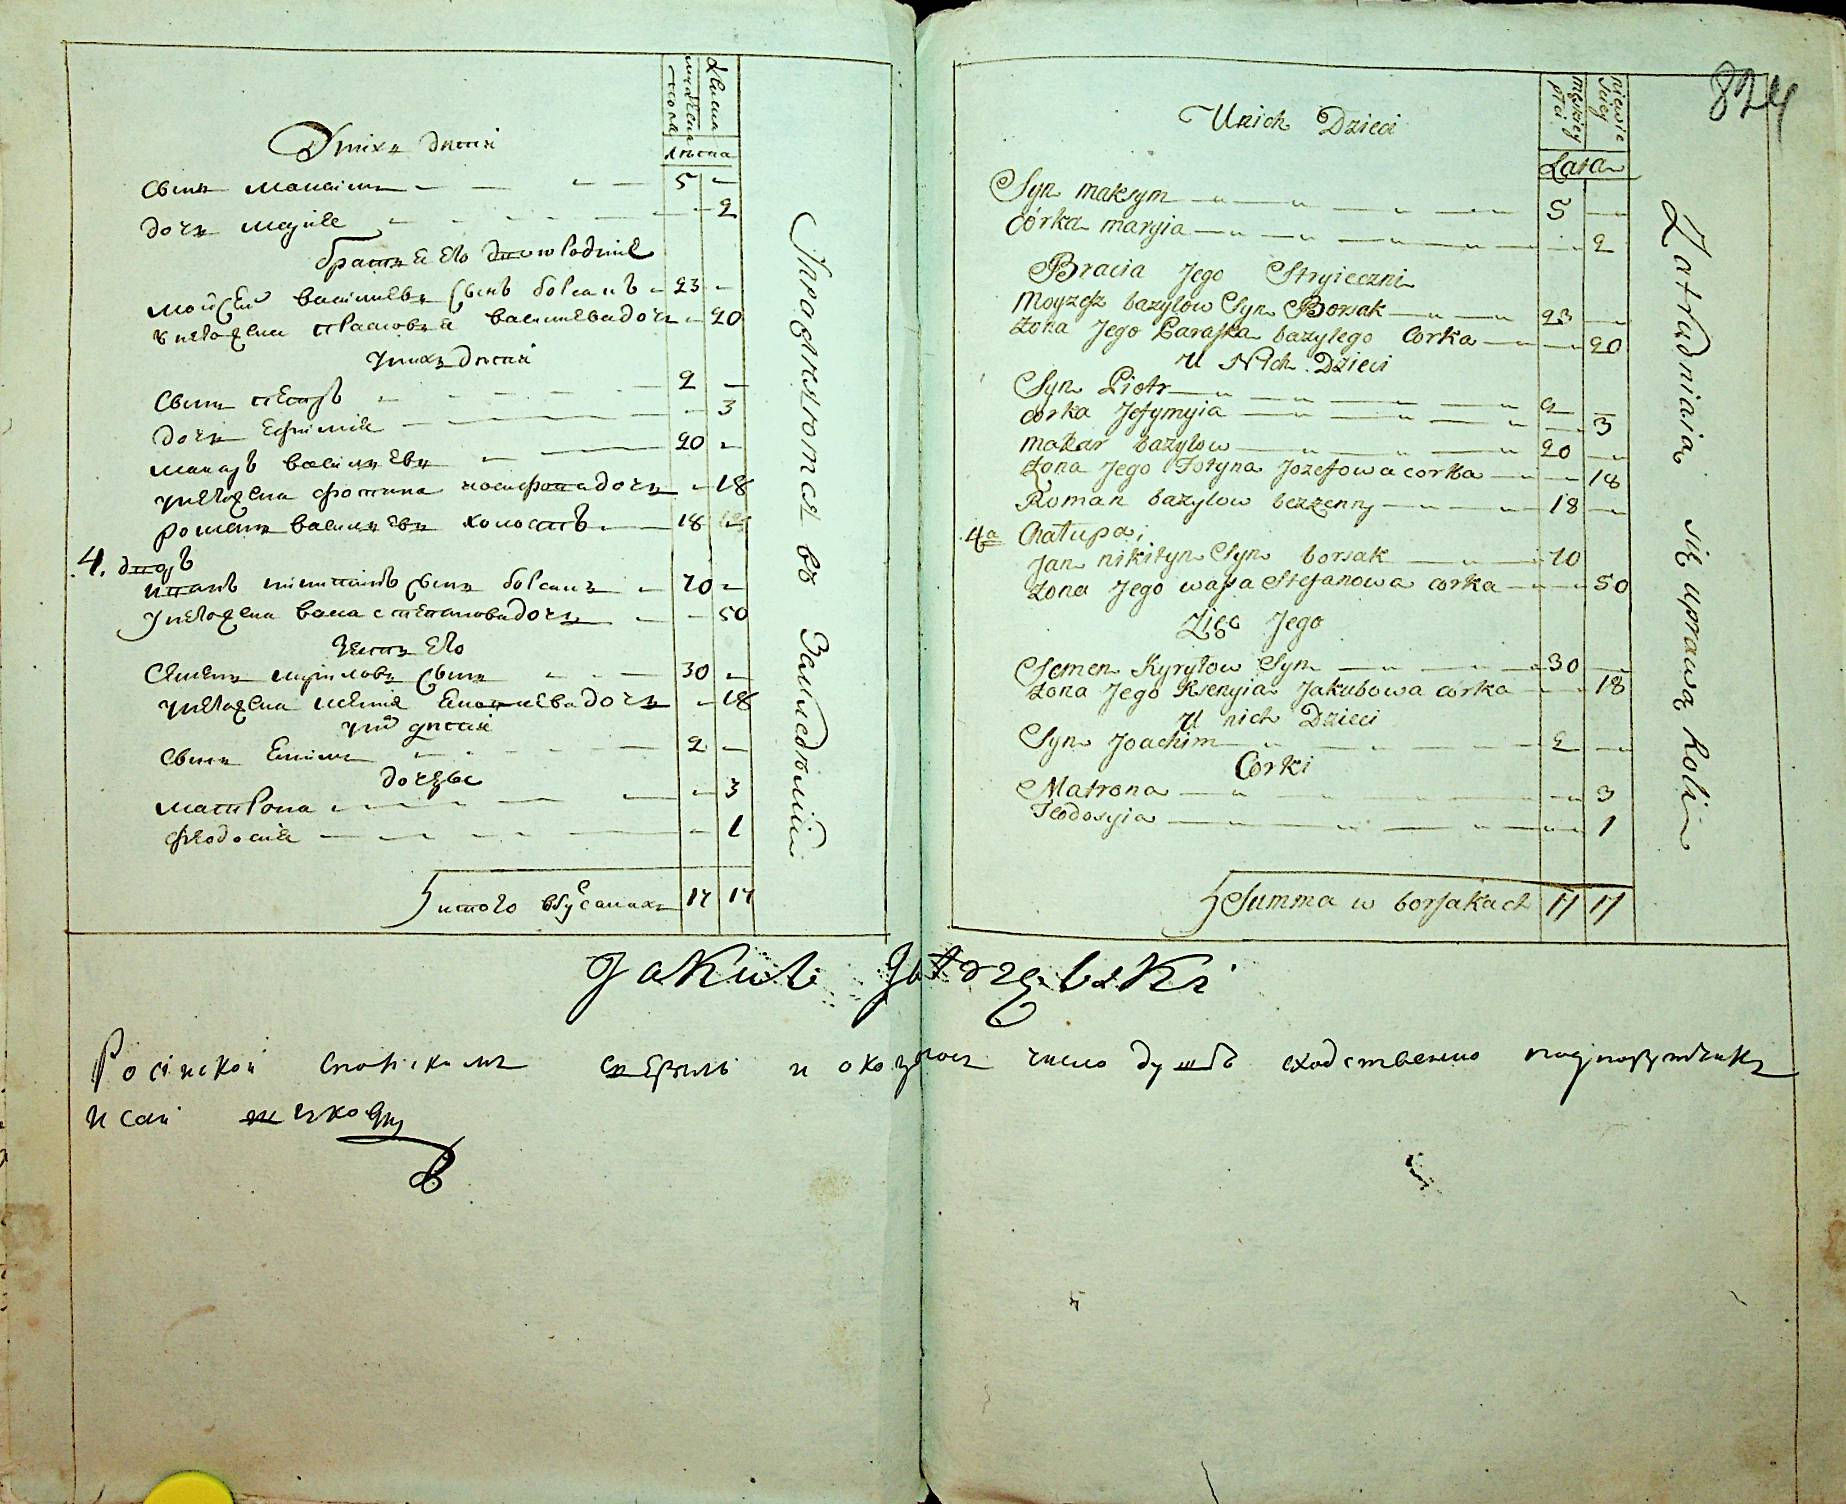 У них дѣтей
мужеска пола
женска
лѣта
Сынъ Максимъ 5 –
Дочь Марія – 2
Братья его двоюродніе
Мойсей Васильевъ сынъ Борсакъ 23 –
У него жена Прасковья Васильева дочь – 20
У нихъ дѣтей
Сынъ Петръ 2 –
Дочь Ефимія – 3
Макаръ Васильевъ 20 –
У него жена Фотина Иосифова дочь – 18
Романъ Васильевъ холостъ 18
4. дворъ
Иванъ Никитинъ сынъ Борсакъ 70 –
У него жена Васа Степанова дочь – 50
Зять его
Семенъ Кириловъ сынъ 30 –
У него жена Ксенія Яковлева дочь – 18
У нихъ дѣтей
Сынъ Екимъ 2 –
Дочери
Матрона – 3
Феодосія – 1
Итого в Бурсаках 17 17
Упражняются въ Замледѣліи
824
U nich Dzieci
męzkiey płci
niewieściey
Lata
Syn Maksym 5 –
Córka maryia – 2
Bracia Jego Stryieczni
Moyzesz bazylow Syn Borsak 23 –
żona Jego Paraska bazylego Corka – 20
U Nich Dzieci
Syn Piotr 2 –
corka Jefymyia – 3
makar bazylow 20 –
żona Jego Fotyna Jozefowa corka – 18
Roman bazylow bezzenny 18 –
4a Chałupa;
Jan nikityn Syn borsak 70
żona Jego wasa Stefanowa corka – 50
Zięć Jego
Semen Kyryłow Syn 30 –
żona Jego Ksenyia Jakubowa córka – 18
U nich Dzieci
Syn Joachim 2 –
Corki
Matrona – 3
Teodosyia – 1
Summa w borsakach 17 17
Zatrudniaią się uprawą Roli
Jakub Jastrzębski
Росiискои
число душъ сходственно подпорутчикъ
Исаи